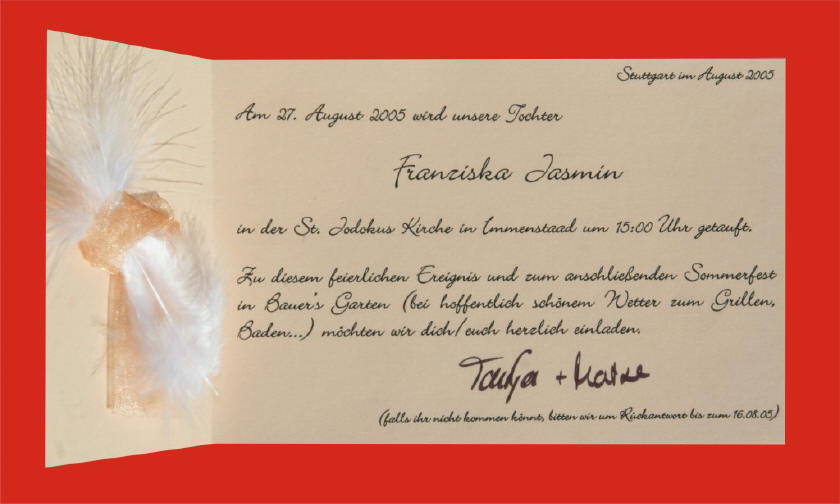 Stuttgart im August 2005
Am 27. August 2005 wird unsere Tochter
Franziska Jasmin
in der St. Jodokus Kirche in Immenstaad um 15:00 Uhr getauft.
Zu diesem feierlichen Ereignis und zum anschließenden Sommerfest
in Bauer's Garten (bei hoffentlich schönem Wetter zum Grillen,
Baden...) möchten wir dich/euch herzlich einladen.
Tanja +
(falls ihr nicht kommen könnt, bitten wir um Rückantwort bis zum 16.08.05)